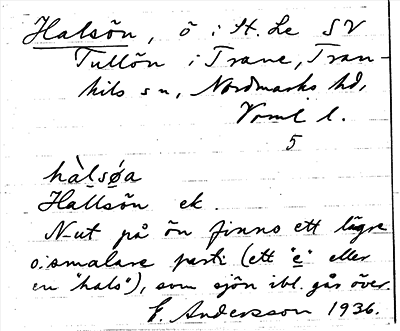 Halsön, ö i St. Le SV
Tullön i Trane, Tran-
kils sn, Nordmarks hd,
Vrml l.
5
hàlsǿa
Hallsön ek.
N-ut på ön finns ett lägre
o. smalare parti (ett "e" eller
en "hals"), som sjön ibl. går över.
F. Andersson 1936.